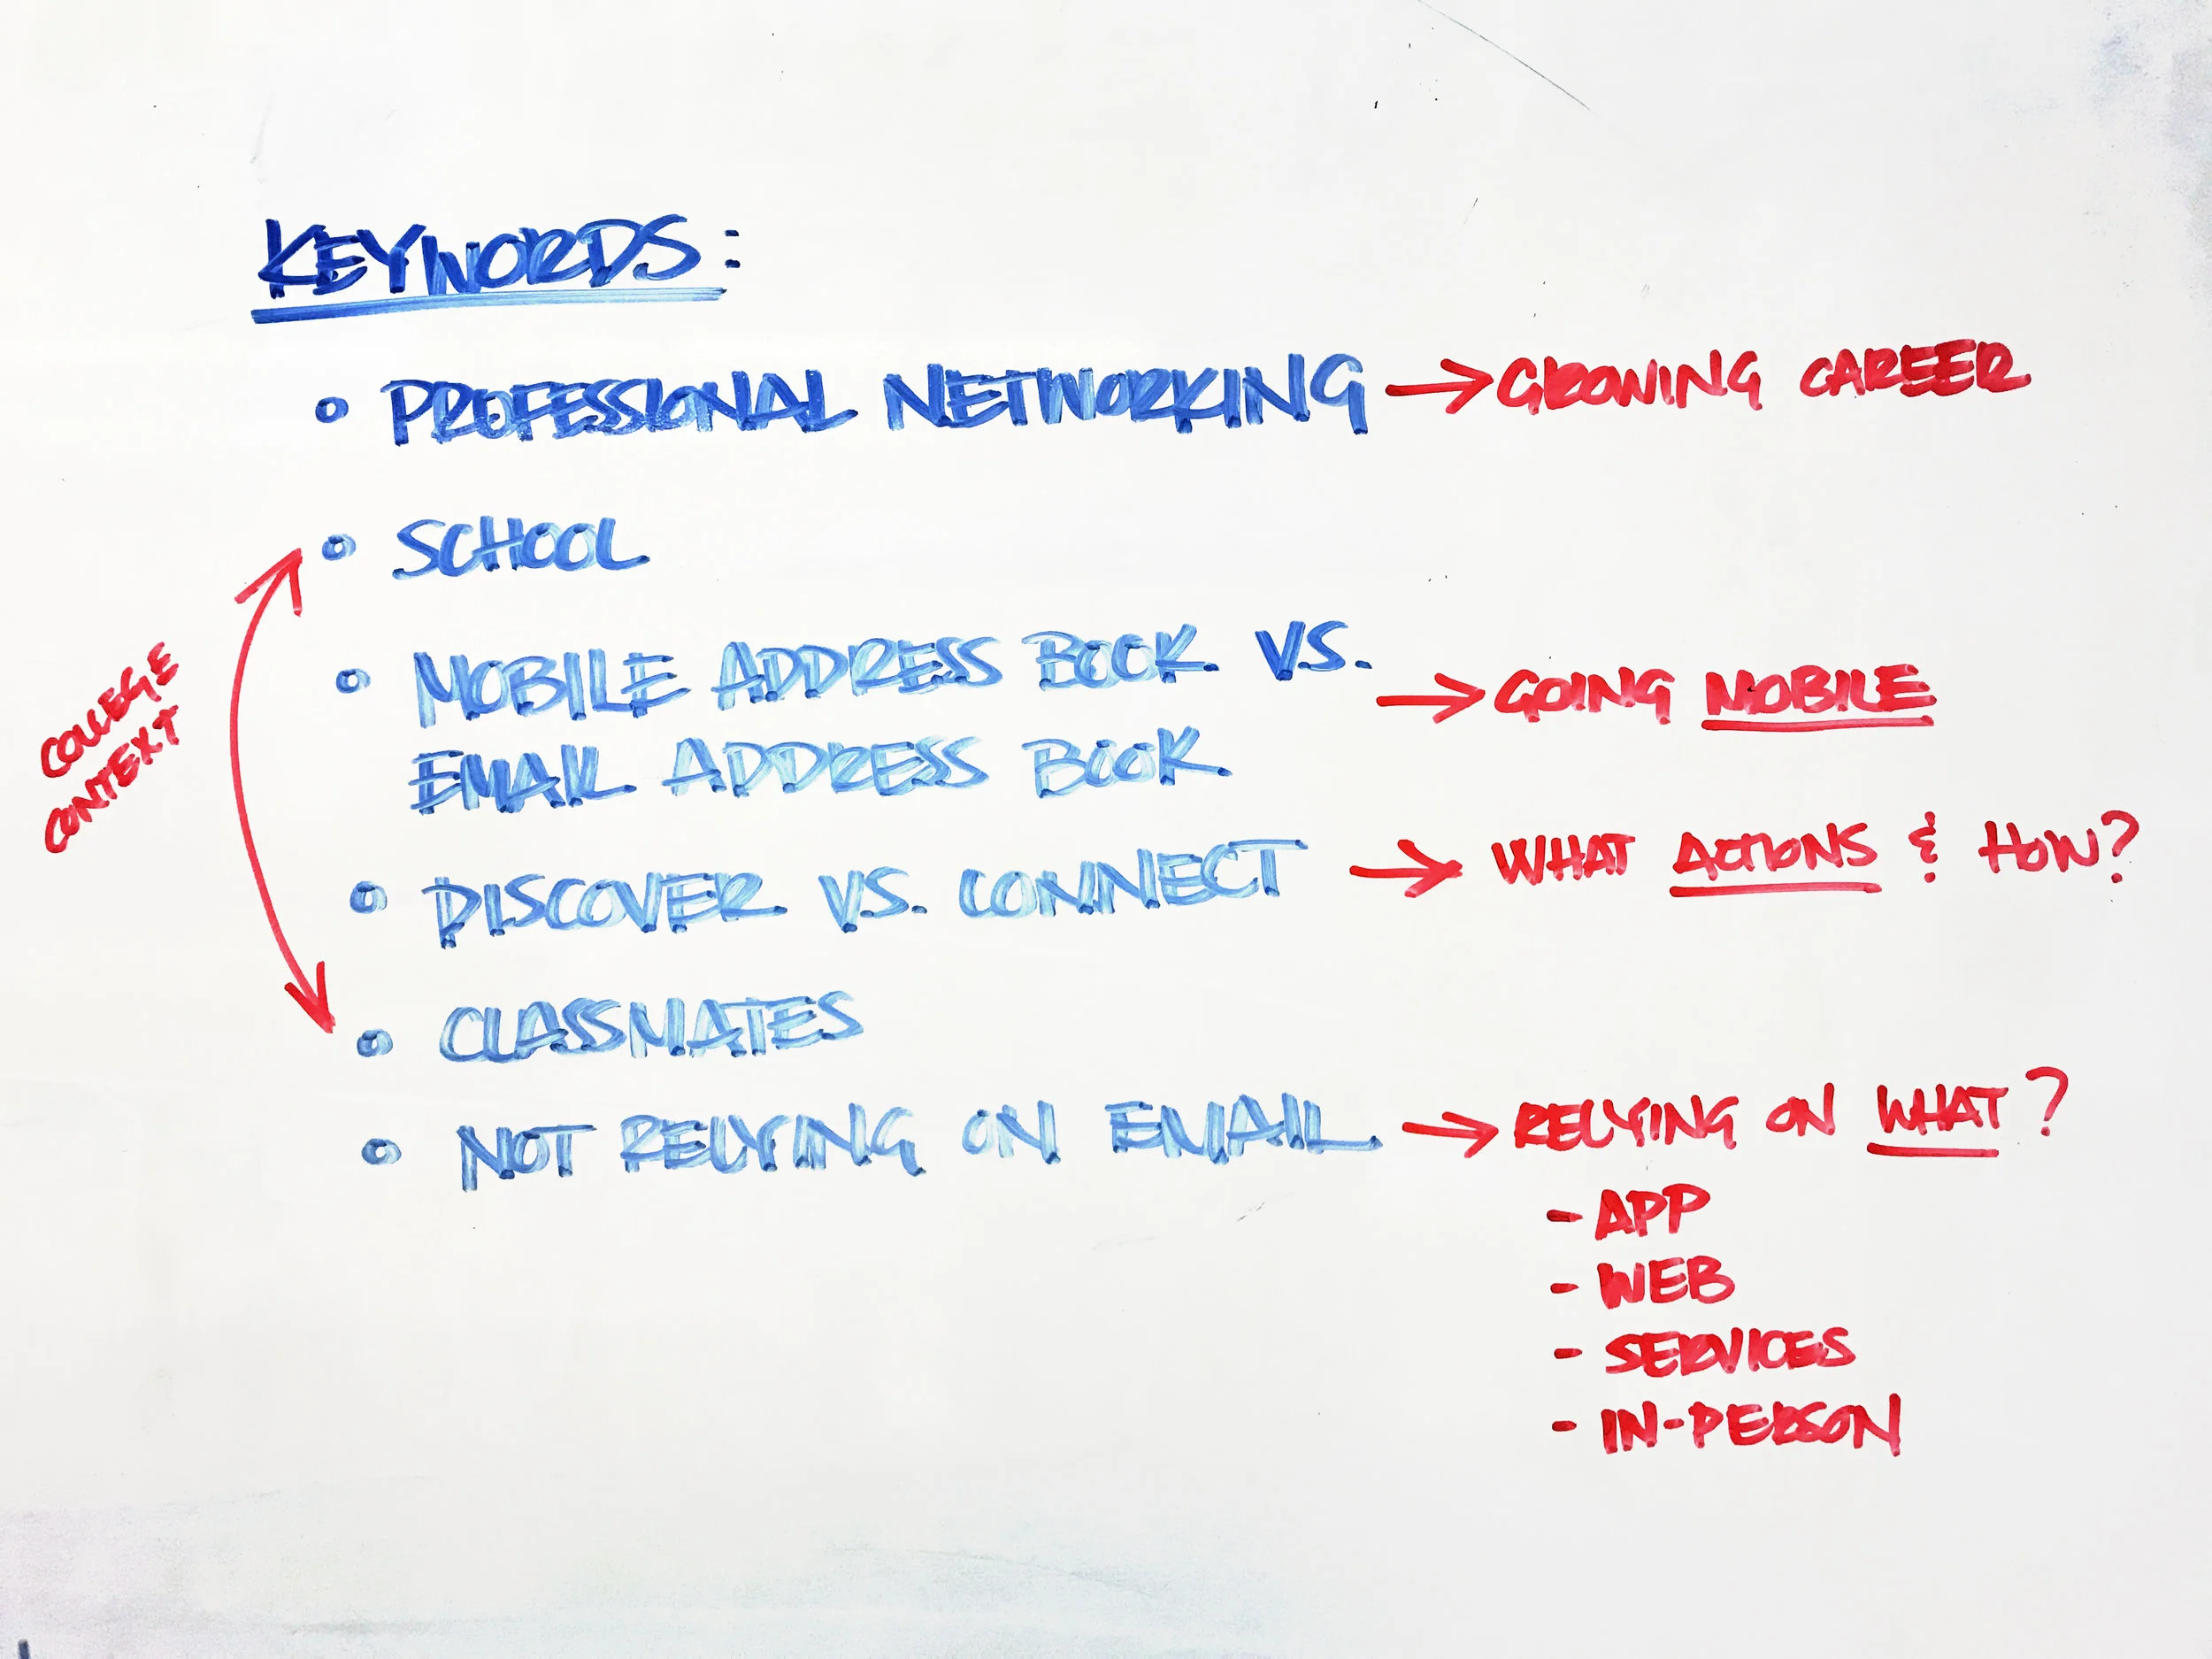 KEYWORDS:
• PROFESSIONAL NETWORKING → GROWING CAREER
• SCHOOL
• MOBILE ADDRESS BOOK VS.
EMAIL ADDRESS BOOK → GOING MOBILE
COLLEGE
CONTEXT
• DISCOVER VS. CONNECT → WHAT ACTIONS & HOW?
• CLASSMATES
• NOT RELYING ON EMAIL → RELYING ON WHAT?
- APP
- WEB
- SERVICES
- IN-PERSON